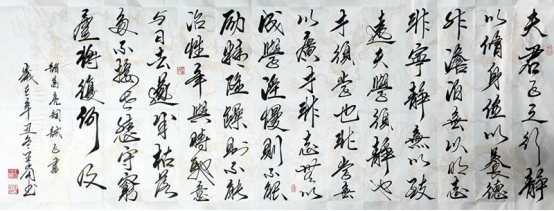 夫君子之行靜
以脩身儉以養德
非澹泊無以明志
非寧靜無以致
遠夫學須靜也
才須學也非學無
以廣才非志無以
成學淫慢則不能
勵精險躁則不能
冶性年與時馳意
與日去遂成枯落
多不接世悲守窮
廬將復何及
諸葛亮誡子書